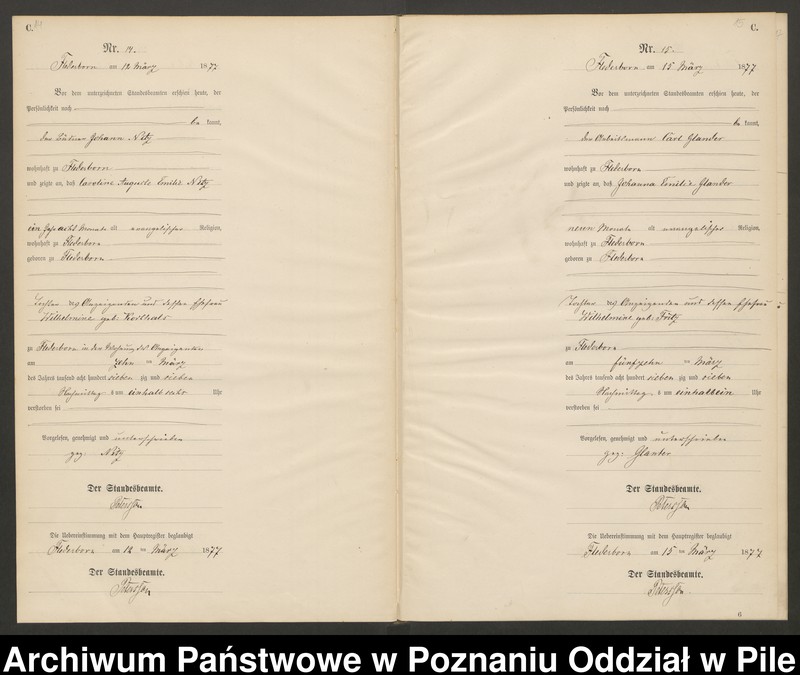 C.
Nr. 14.
Flederborn am 12 März 1877
Vor dem unterzeichneten Standesbeamten erschien heute, der
Persönlichkeit nach
be kannt,
der Büdner Johann Nitz
wohnhaft zu Flederborn
und zeigte an, daß Caroline Auguste Emilie Nitz
ein Jahr acht Monate alt evangelischer Religion,
wohnhaft zu Flederborn
geboren zu Flederborn
Tochter des Anzeigenden und dessen Ehefrau
Wilhelmine geb:
zu Flederborn in der Wohnung des Anzeigenden
am zehn ten März
des Jahrs tausend acht hundert sieben zig und sieben
Nachmittag s um einhalb Uhr
verstorben sei
Vorgelesen, genehmigt und unterschrieben
gez: Nitz
Der Standesbeamte.
Die Uebereinstimmung mit dem Hauptregister beglaubigt
Flederborn am 12 ten März 1877
Der Standesbeamte.
15 C.
Nr. 15.
Flederborn am 15 März 1877
Vor dem unterzeichneten Standesbeamten erschien heute, der
Persönlichkeit nach
be kannt,
der Arbeitsmann Carl Glander
wohnhaft zu Flederborn
und zeigte an, daß Johanna Emilie Glander
neun Monate alt evangelischer Religion,
wohnhaft zu Flederborn
geboren zu Flederborn
Tochter des Anzeigenden und dessen Ehefrau
Wilhelmine geb: Fritz
zu Flederborn
am fünfzehn ten März
des Jahrs tausend acht hundert sieben zig und sieben
Nachmittag s um einhalbein Uhr
verstorben sei
Vorgelesen, genehmigt und unterschrieben
gez: Glander
Der Standesbeamte.
Die Uebereinstimmung mit dem Hauptregister beglaubigt
Flederborn am 15 ten März 1877
Der Standesbeamte.
6
Archiwum Państwowe w Poznaniu Oddział w Pile